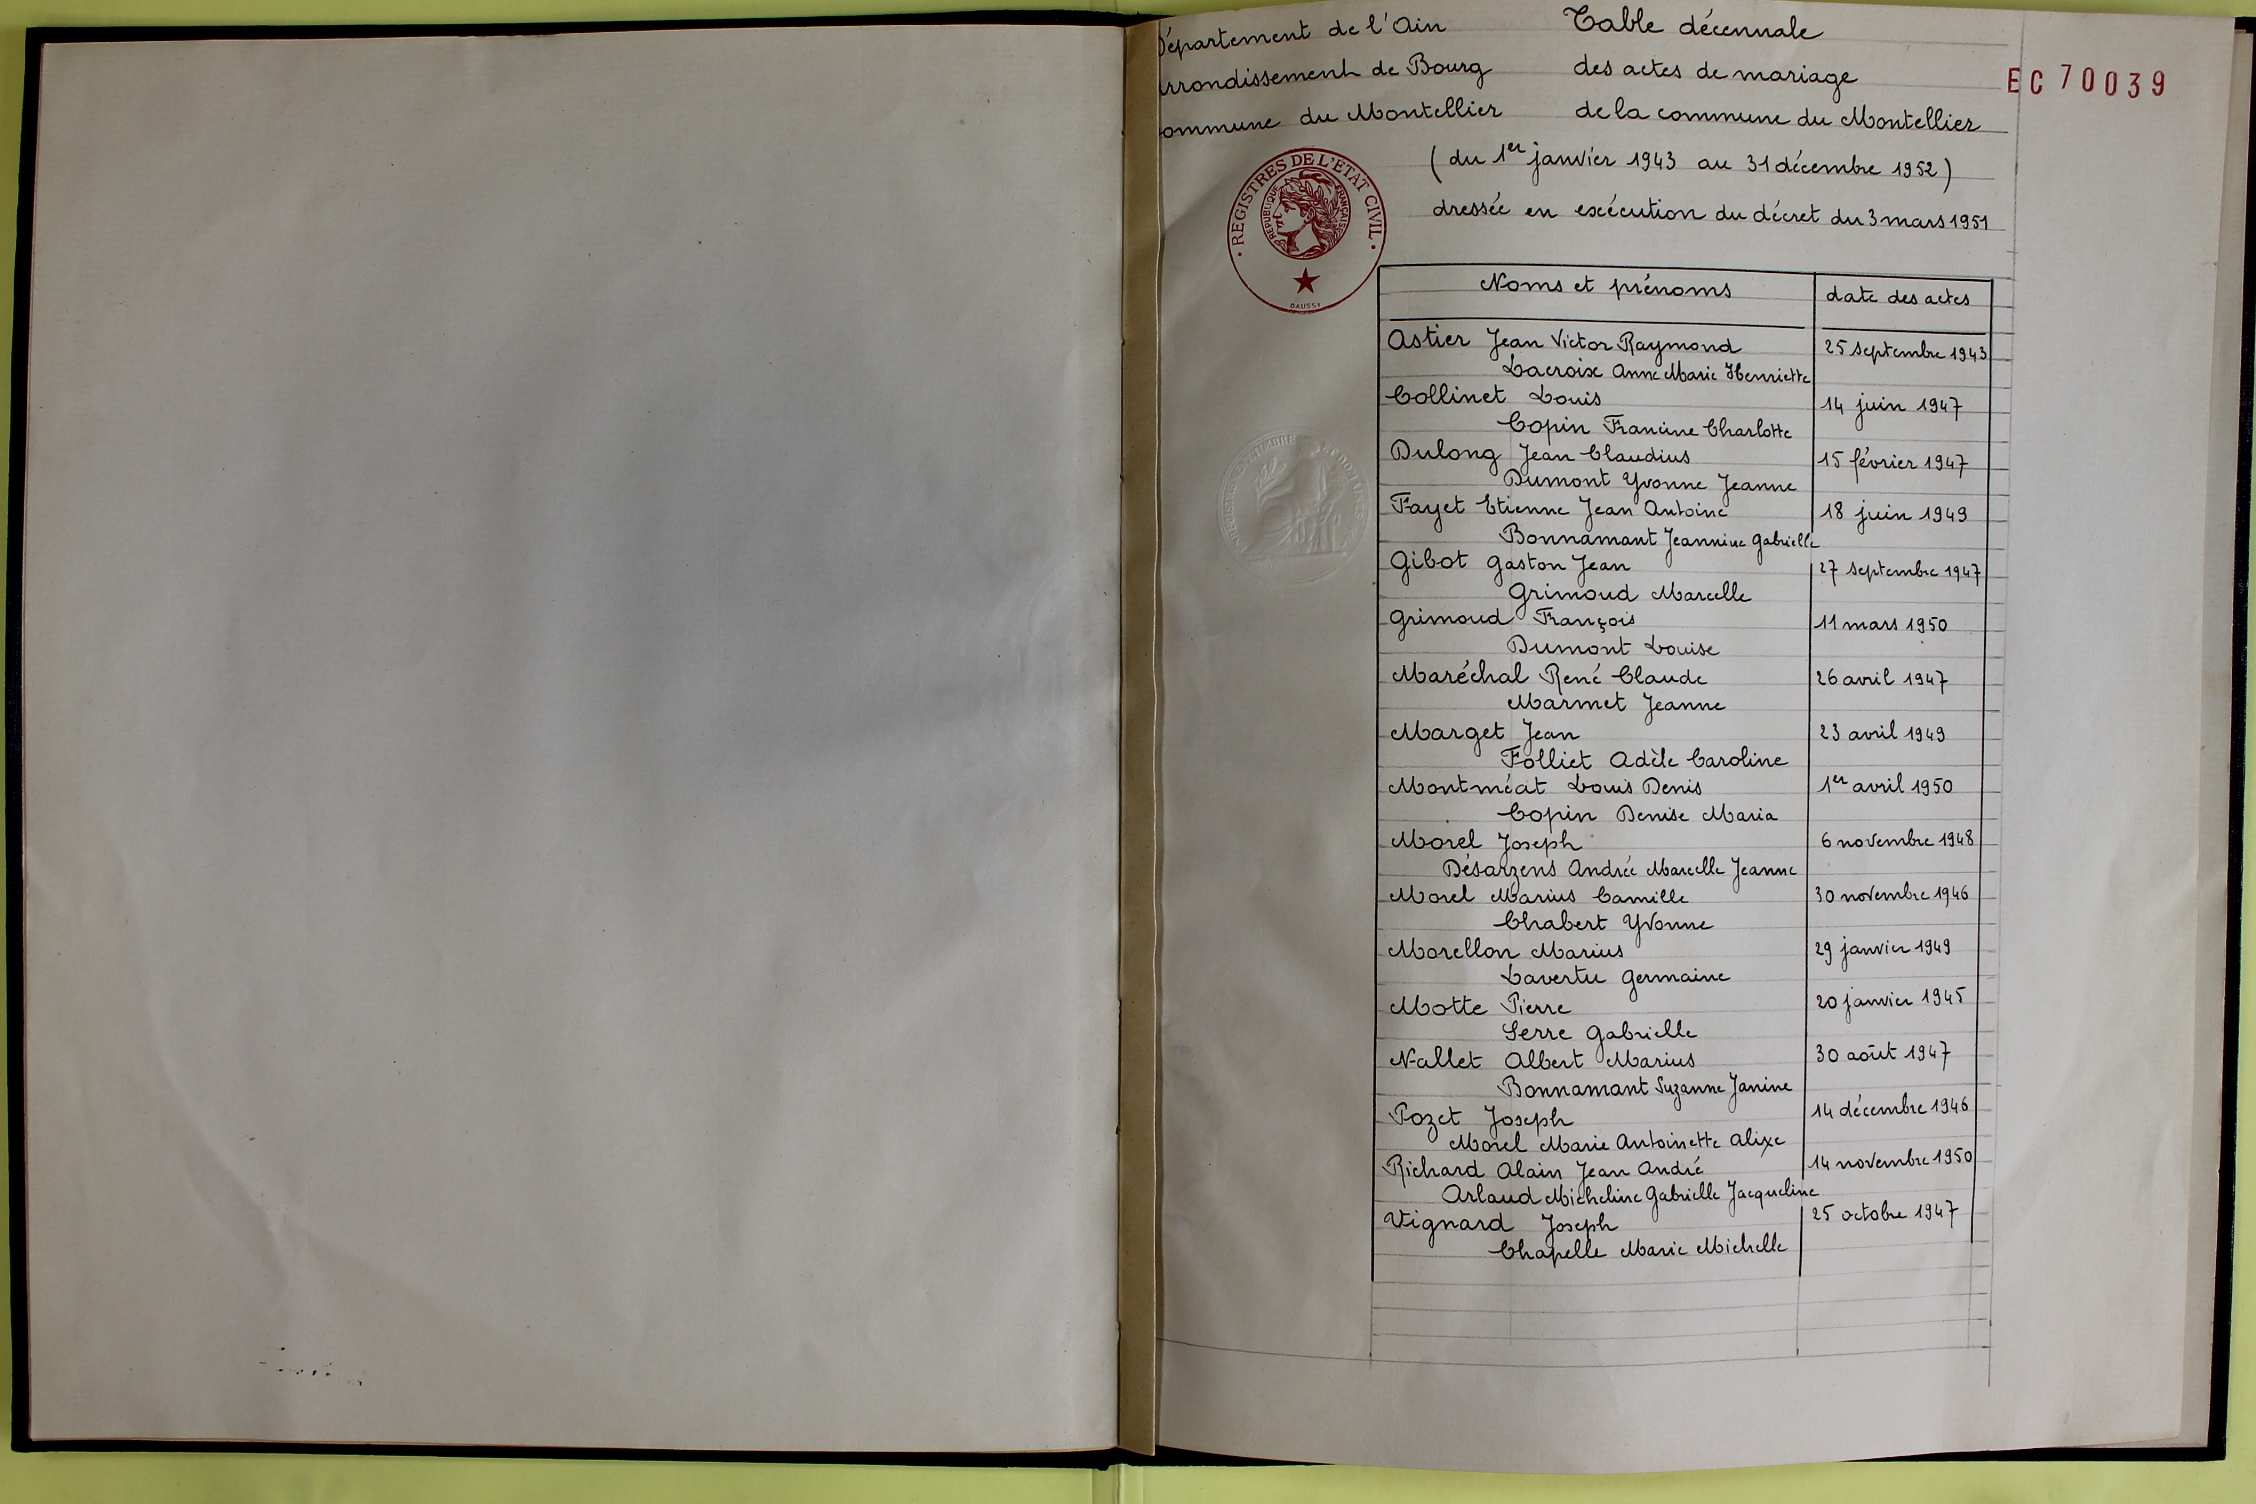 Département de l'Ain
Table décennale
arrondissement de Bourg
des actes de mariage
EC 70039
commune du Montellier
de la commune du Montellier
(du 1er janvier 1943 au 31 décembre 1952)
dressée en exécution du décret du 3 mars 1951
REGISTRES DE L'ETAT CIVIL
REPUBLIQUE FRANÇAISE
Noms et prénoms
date des actes
Astier Jean Victor Raymond
25 septembre 1943
Lacroix Anne Marie Henriette
Collinet Louis
14 juin 1947
Copin Francine Charlotte
Dulong Jean Claudius
15 février 1947
Dumont Yvonne Jeanne
Fayet Etienne Jean Antoine
18 juin 1949
Bonnamant Jeannine Gabrielle
Gibot Gaston Jean
27 septembre 1947
Grimoud Marcelle
Grimoud François
11 mars 1950
Dumont Louise
Maréchal René Claude
26 avril 1947
Marmet Jeanne
Marget Jean
23 avril 1949
Folliet Adèle Caroline
Montméat Louis Denis
1er avril 1950
Copin Denise Maria
Morel Joseph
6 novembre 1948
Désarzens Andrée Marcelle Jeanne
Morel Marius Camille
30 novembre 1946
Chabert Yvonne
Morellon Marius
29 janvier 1949
Lavertu Germaine
Motte Pierre
20 janvier 1945
Serre Gabrielle
Nallet Albert Marius
30 août 1947
Bonnamant Suzanne Janine
Pozet Joseph
14 décembre 1946
Morel Marie Antoinette Alixe
Richard Alain Jean André
14 novembre 1950
Arlaud Micheline Gabrielle Jacqueline
Vignard Joseph
25 octobre 1947
Chapelle Marie Michelle